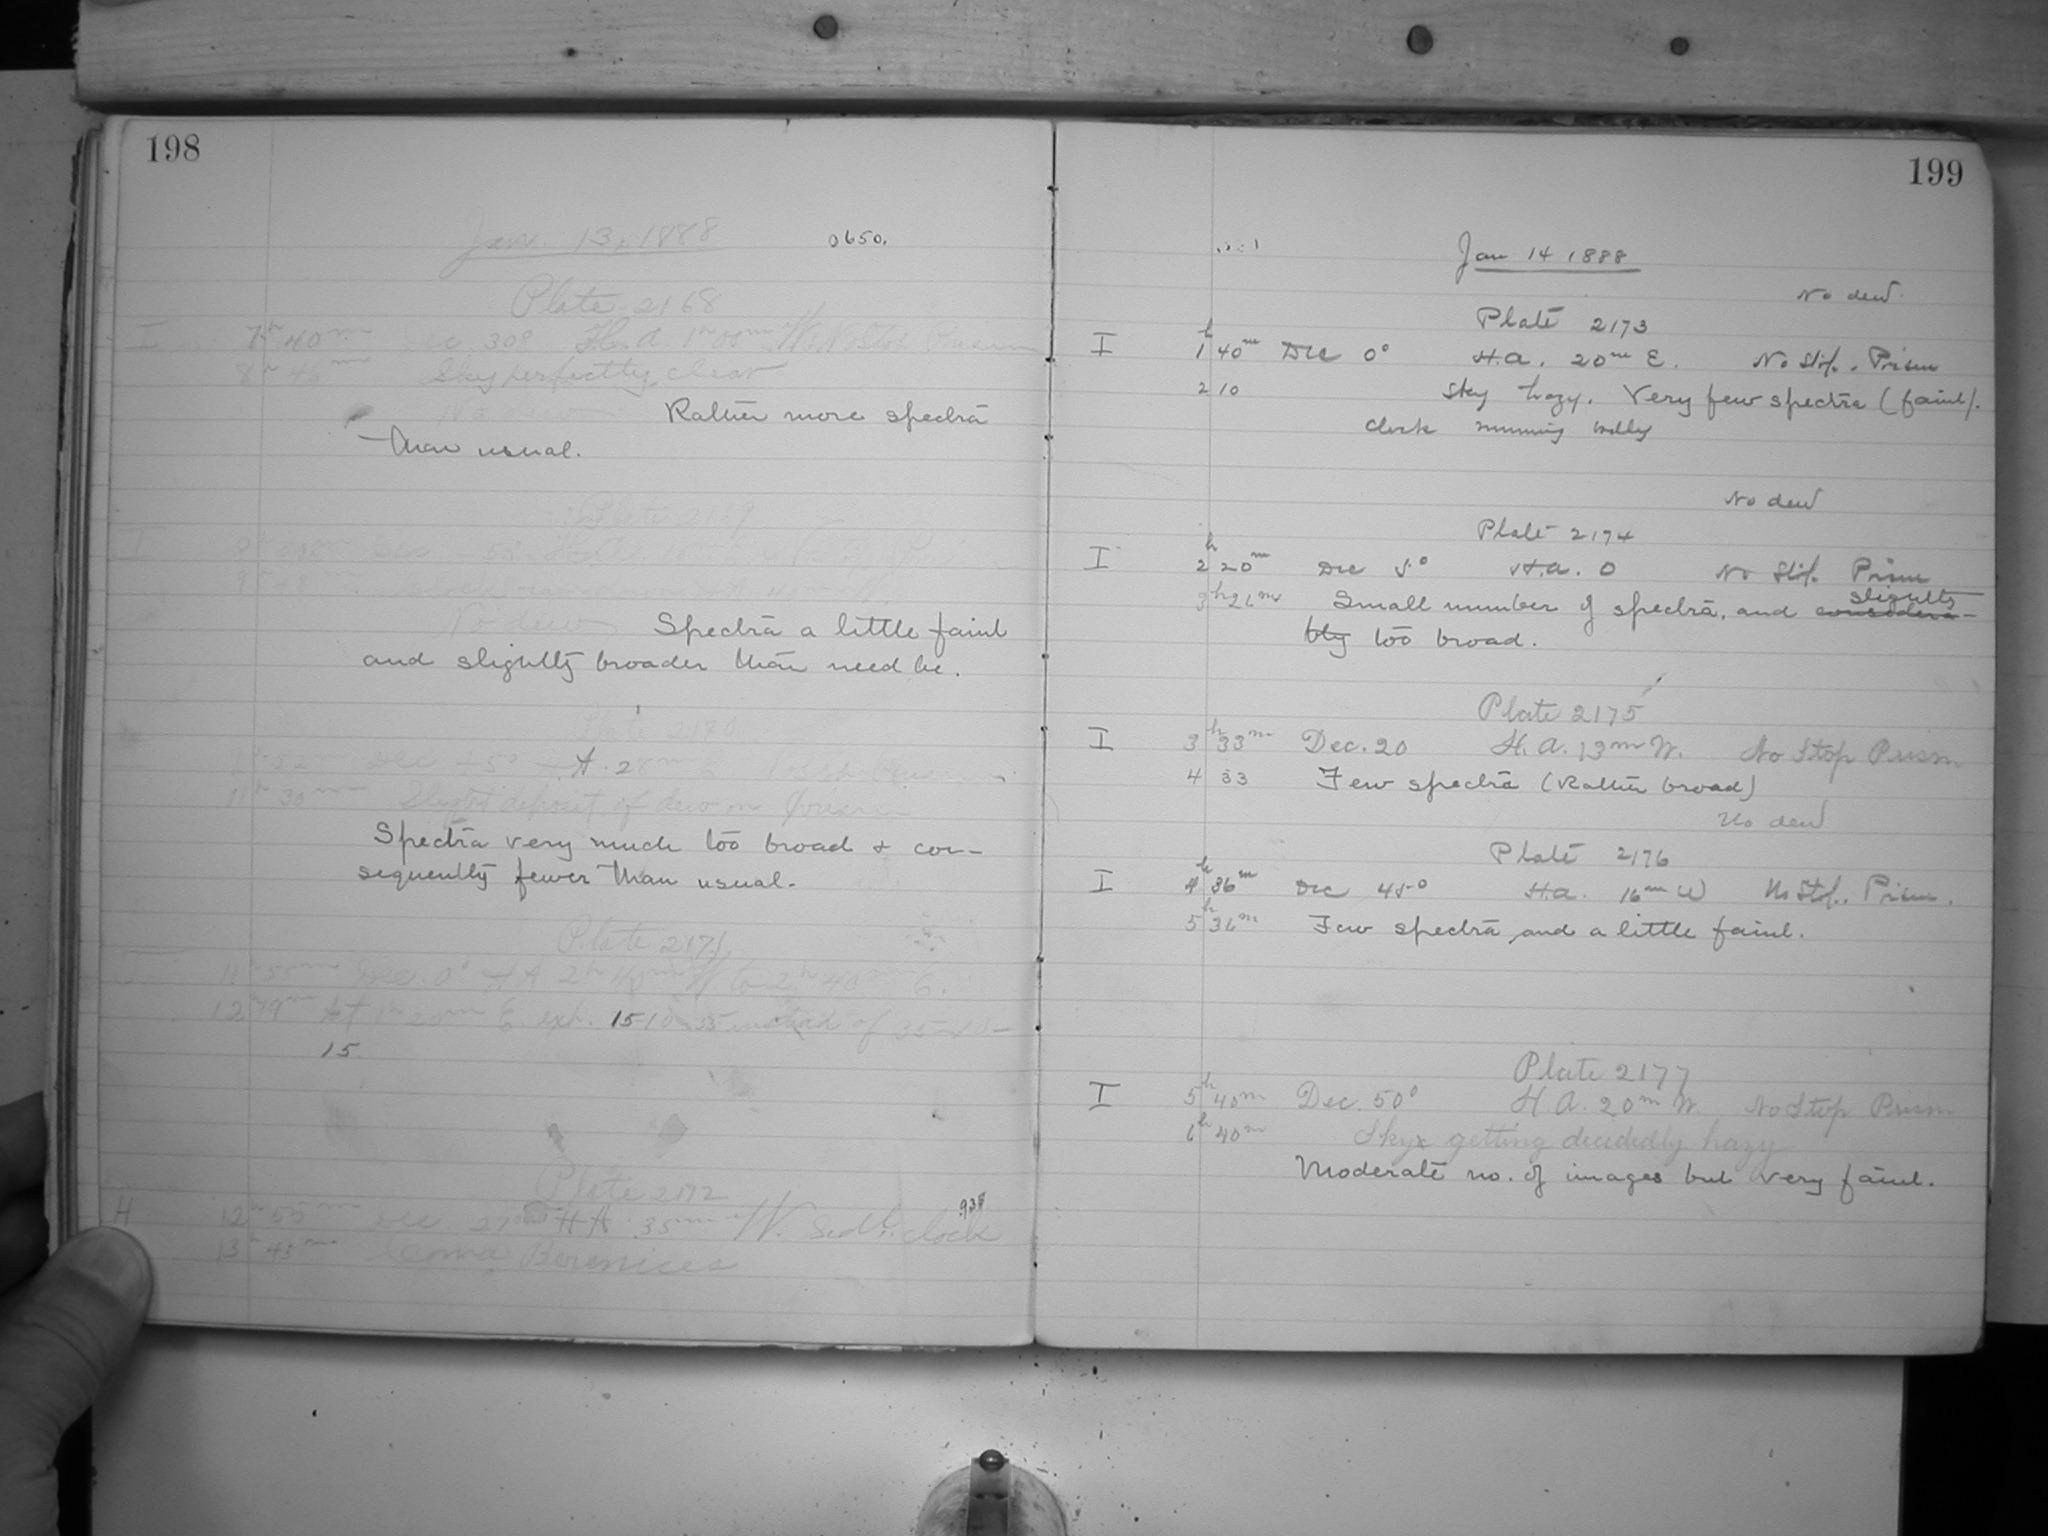 198
Jan. 13, 1888 0650.
Plate 2168
I 7h 40m Dec 30° H.A. 1h 00m W. No Stop Prism
8h 46m Sky perfectly clear
No dew Rather more spectra
than usual.
Plate 2169
I
No dew Spectra a little faint
and slightly broader than need be.
Plate 2170
11h 30m Slight deposit of dew on prism
Spectra very much too broad & con-
sequently fewer than usual.
Plate 2171
I 11h 55m Dec. 0° H A 2h 40m W. to 2h 40m E.
12h 49m At 1h 20m E. exp. 15 10 35 instead of 35
15.
Plate 2172
H 12h 55m Dec. 27 H A. 35m W. Sid'l. clock 938
13h 45m Coma Berenices
199
Jan 14 1888
No dew.
Plate 2173
I 1h 40m Dec 0° H.A. 20m E. No Stop. Prism
2 10 Sky hazy. Very few spectra (faint).
Clock running badly
No dew
Plate 2174
I 2h 20m Dec 5° H.A. 0 No Stop. Prism
slightly
3h 26m Small number of spectra, and considera-
bly too broad.
Plate 2175
I 3h 33m Dec. 20 H. A. 13m W. No Stop Prism
4 33 Few spectra (Rather broad)
No dew
Plate 2176
I 4h 36m Dec 45° H.A. 16m W No Stop. Prism.
5h 36m Few spectra, and a little faint.
Plate 2177
I 5h 40m Dec. 50° H. A. 20m W. No Stop Prism
6h 40m Sky getting decidedly hazy
Moderate no. of images but very faint.